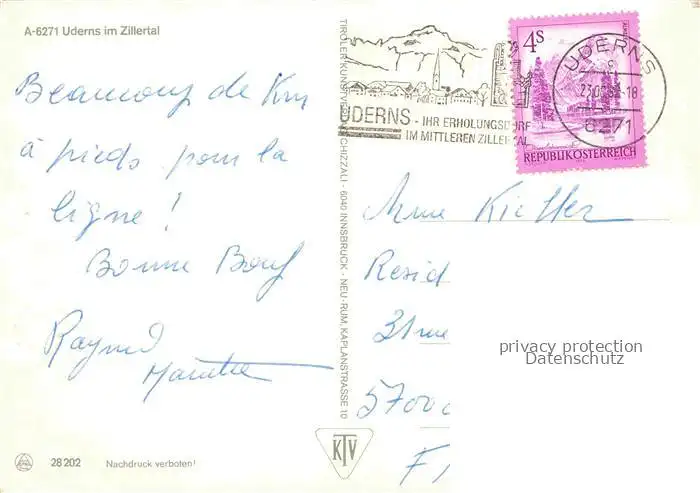 A-6271 Uderns im Zillertal
Beaucoup de Km
à pieds pour la
ligne !
Bonne Bouf
Raymd
28 202 Nachdruck verboten!
TIROLER KUNSTVERLAG CHIZZALI - 6040 INNSBRUCK - NEU-RUM, KAPLANSTRASSE 10
KTV
UDERNS - IHR ERHOLUNGSDORF
IM MITTLEREN ZILLERTAL
4S
REPUBLIK ÖSTERREICH
UDERNS
6271
Mme Kieffer
Resid
31 rue
5700
F
privacy protection
Datenschutz